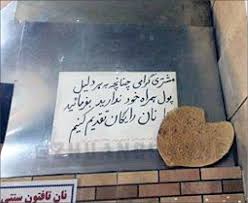 مشتری گرامی چنانچه به هر دلیل
پول همراه خود ندارید بفرمائید
تا نان رایگان تقدیم کنیم
نان تافتون سنتی